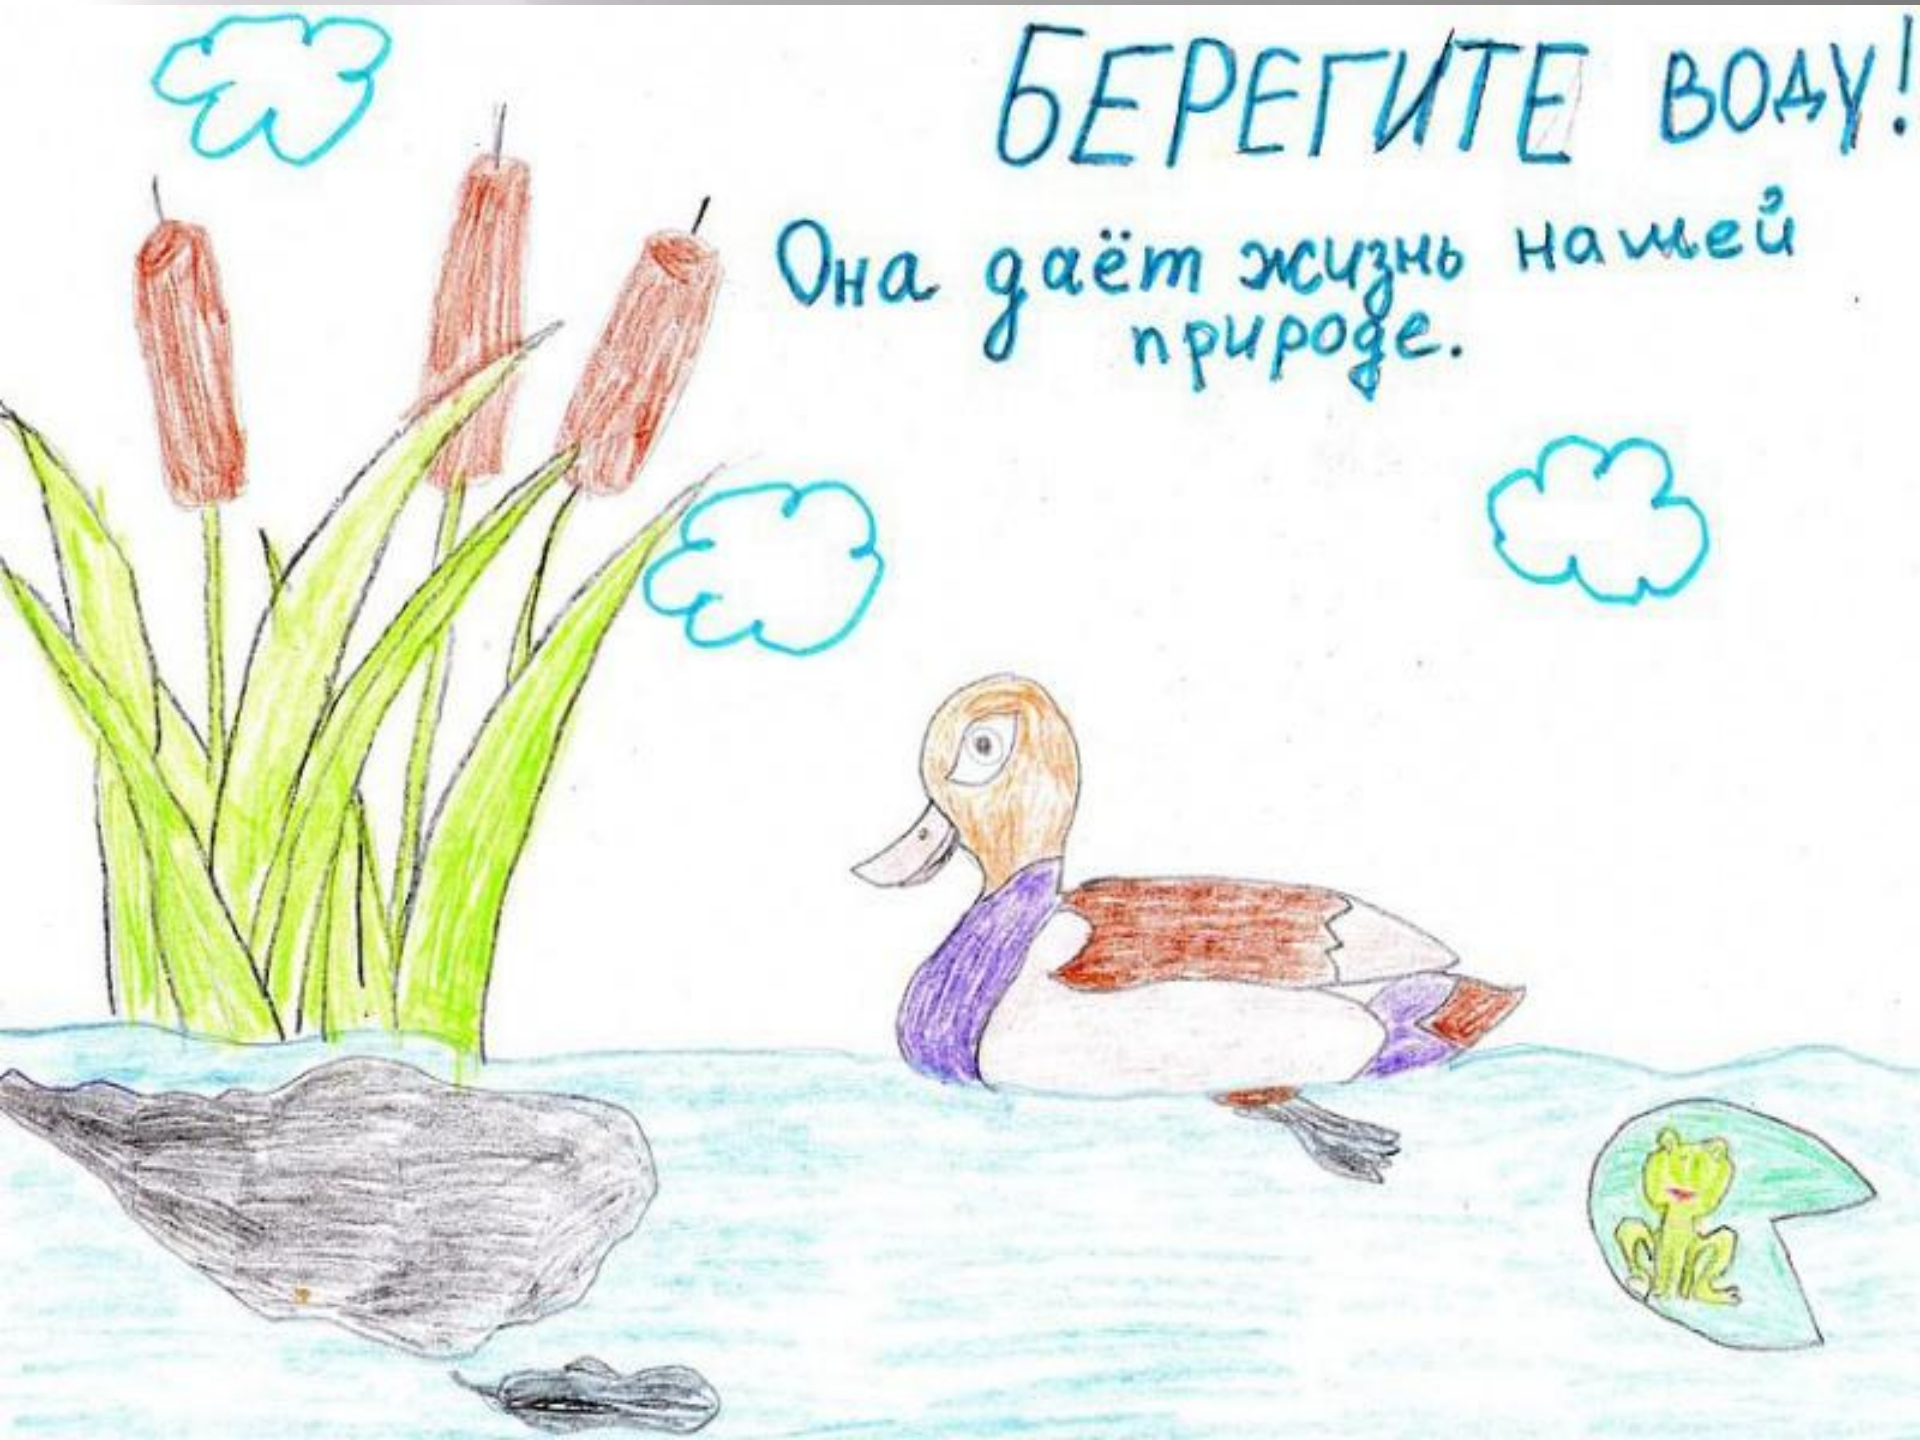 БЕРЕГИТЕ ВОДУ!
Она даёт жизнь нашей
природе.